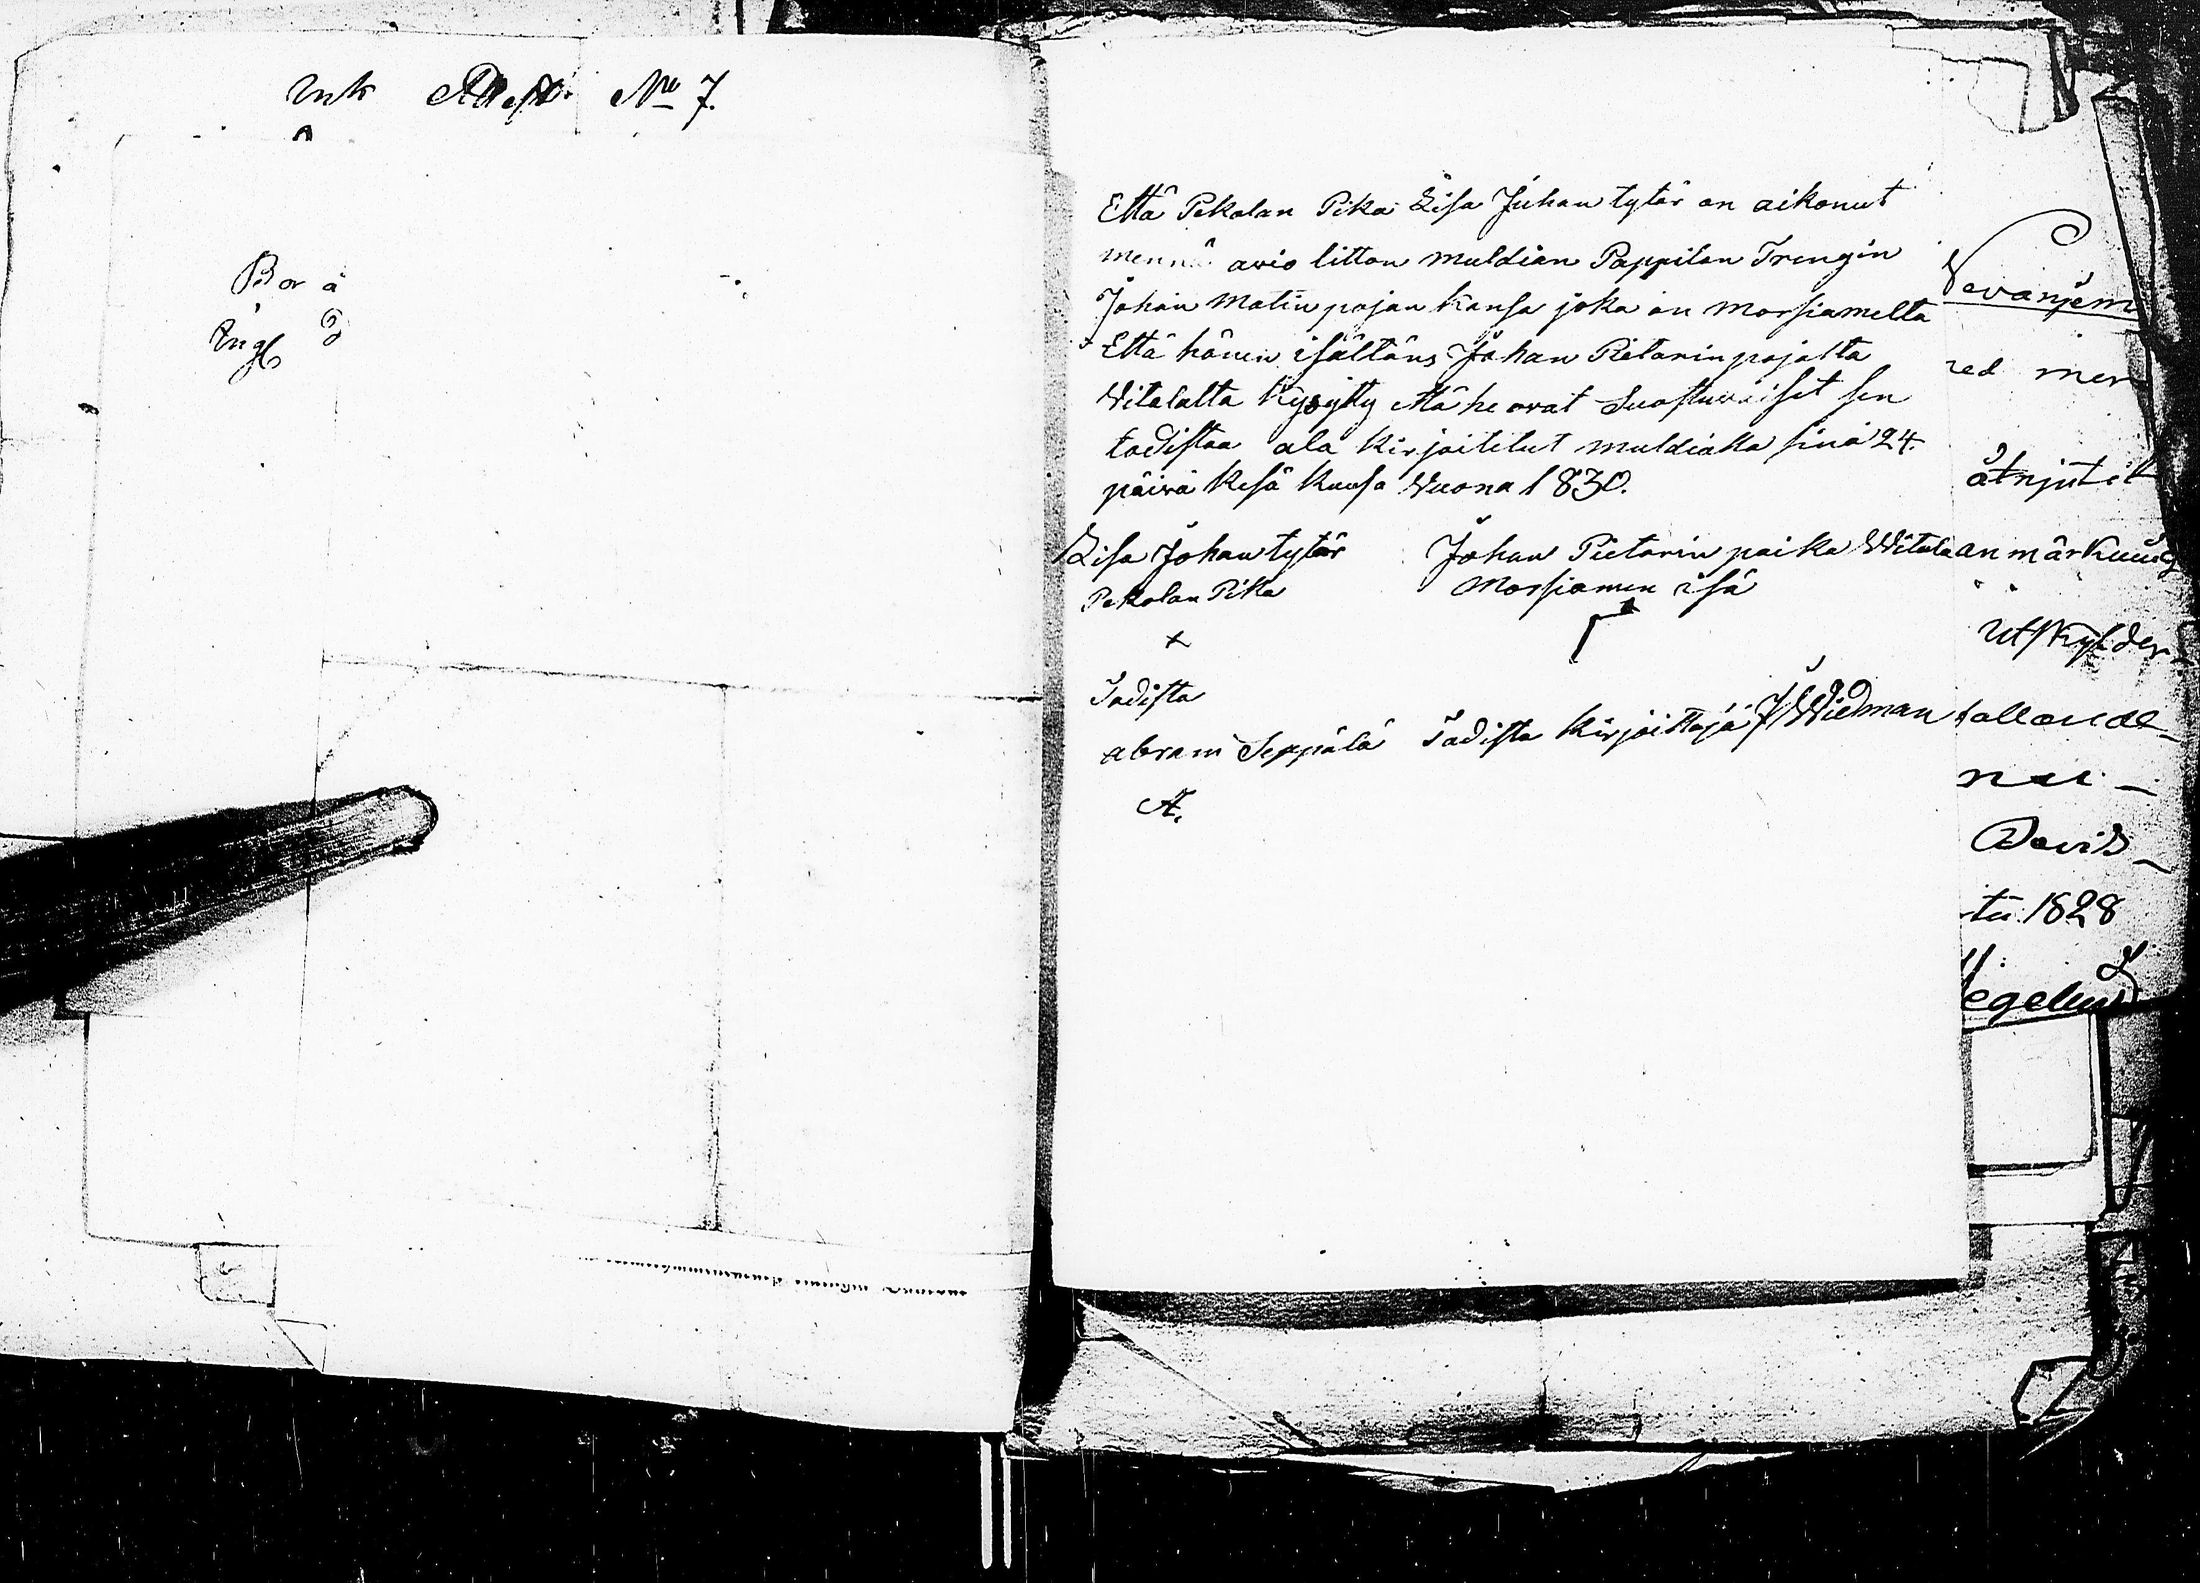 Ink Attest. No 7.
Bor å
Engl
Että Pekolan Pika Lisa Juhan tytär on aikonut
mennä avio litton muldian Pappilan Trengin
Johan Matin pojan kansa joka on morsiamelta
Että hänen isältäns Johan Pietarin pojalta
Witalalta kysytty että he ovat suostuvaiset sen
todistaa ala kirjoitetut muldialla sinä 24.
päivä kesä kuusa Wuona 1830.
Lisa Johan tytär Johan Pietarin poika Witala
Pekolan Pika Morsiamen isä
x
Todista
abram Seppälä Todista kirjoittaja J Widman
A.
evanjem
red mer
åtnjutit
anmärkning
utskylder
nu
David
1828
egelius